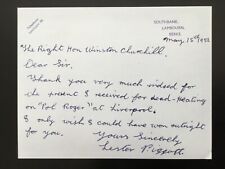 SOUTHBANK,
LAMBOURN,
BERKS.
May, 15th 1952
The Right Hon Winston Churchill,
Dear Sir,
Thank you very much indeed for
the present I received for dead-Heating
on "Pol Roger" at Liverpool.
I only wish I could have won outright
for you.
Yours Sincerely
Lester Piggott